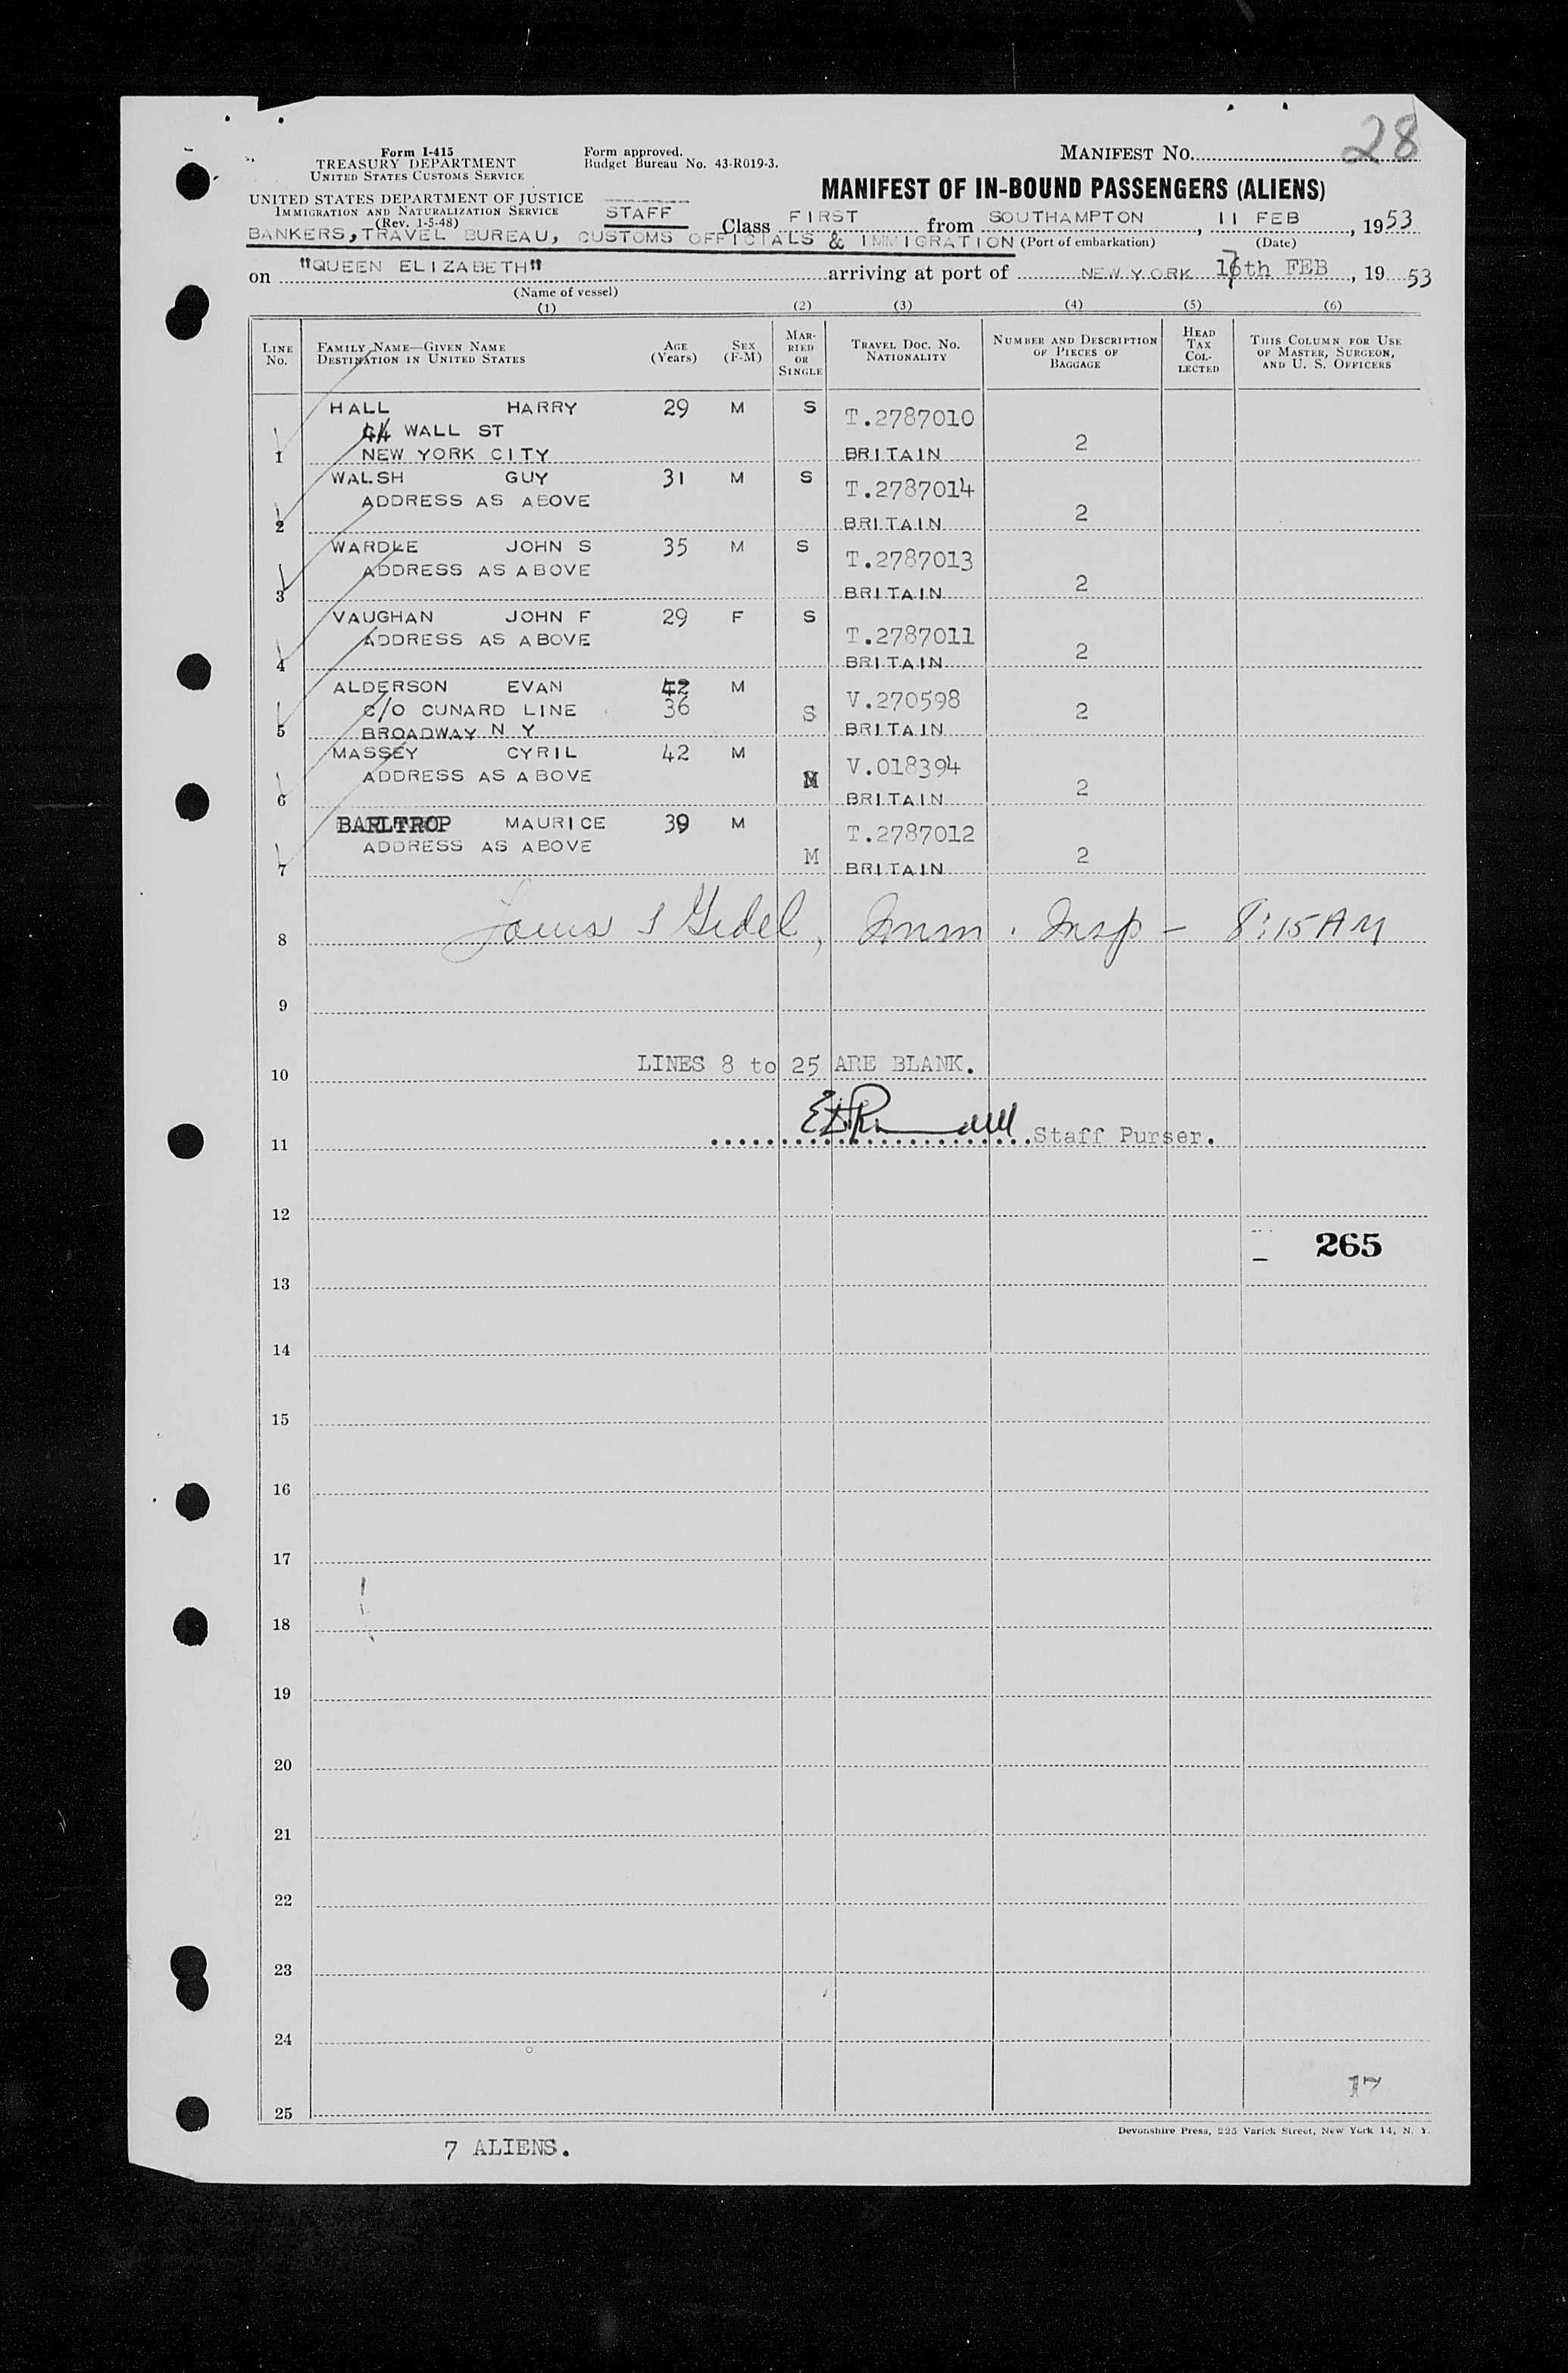 28
Form I-415
TREASURY DEPARTMENT
UNITED STATES CUSTOMS SERVICE
Form approved.
Budget Bureau No. 43-R019-3.
MANIFEST No.
UNITED STATES DEPARTMENT OF JUSTICE
IMMIGRATION AND NATURALIZATION SERVICE
(Rev. 1-5-48)
MANIFEST OF IN-BOUND PASSENGERS (ALIENS)
STAFF Class FIRST from SOUTHAMPTON, 11 FEB, 1953
BANKERS, TRAVEL BUREAU, CUSTOMS OFFICIALS & IMMIGRATION (Port of embarkation) (Date)
on "QUEEN ELIZABETH" arriving at port of NEW YORK 16th FEB, 19 53
(Name of vessel)
(1) (2) (3) (4) (5) (6)
LINE No. FAMILY NAME—GIVEN NAME DESTINATION IN UNITED STATES AGE (Years) SEX (F-M) MARRIED OR SINGLE TRAVEL DOC. NO. NATIONALITY NUMBER AND DESCRIPTION OF PIECES OF BAGGAGE HEAD TAX COLLECTED THIS COLUMN FOR USE OF MASTER, SURGEON, AND U. S. OFFICERS
HALL HARRY 29 M S T.2787010
44 WALL ST 2
1 NEW YORK CITY BRITAIN
WALSH GUY 31 M S T.2787014
ADDRESS AS ABOVE 2
2 BRITAIN
WARDLE JOHN S 35 M S T.2787013
ADDRESS AS ABOVE 2
3 BRITAIN
VAUGHAN JOHN F 29 F S T.2787011
ADDRESS AS ABOVE 2
4 BRITAIN
ALDERSON EVAN 42 M V.270598
C/O CUNARD LINE 36 S 2
5 BROADWAY N Y BRITAIN
MASSEY CYRIL 42 M V.018394
ADDRESS AS ABOVE M 2
6 BRITAIN
BARLTROP MAURICE 39 M T.2787012
ADDRESS AS ABOVE M 2
7 BRITAIN
8 Louis S Gedel, Imm. Insp – 8:15 AM
9
LINES 8 to 25 ARE BLANK.
10
11 Staff Purser.
12
265
13
14
15
16
17
18
19
20
21
22
23
24
17
25
Devonshire Press, 225 Varick Street, New York 14, N. Y.
7 ALIENS.